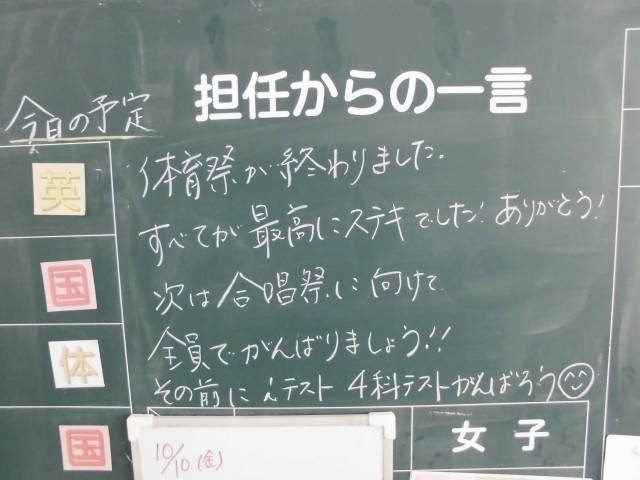 担任からの一言
今日の予定
英
国
体
国
体育祭が終わりました。
すべてが最高にステキでした!ありがとう!
次は合唱祭に向けて
全員でがんばりましょう!!
その前に iテスト 4科テストがんばろう
10/10(金)
女子